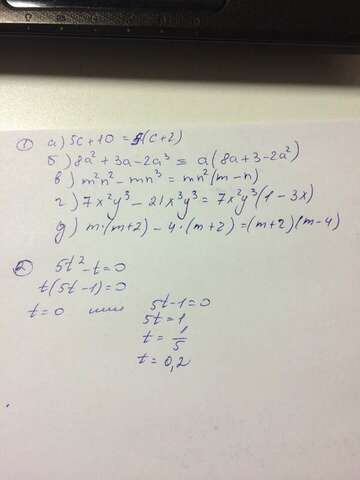 ① а) 5c + 10 = 5(c+2)
б) 8a² + 3a - 2a³ = a(8a + 3 - 2a²)
в) m²n² - mn³ = mn²(m - n)
г) 7x²y³ - 21x³y³ = 7x²y³(1 - 3x)
д) m·(m+2) - 4·(m+2) = (m+2)(m-4)
② 5t² - t = 0
t(5t - 1) = 0
t = 0 или 5t - 1 = 0
5t = 1
t = 1/5
t = 0,2